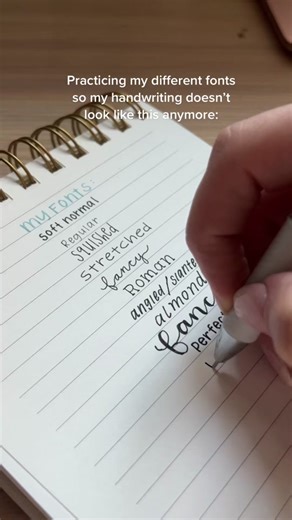 Practicing my different fonts
so my handwriting doesn't
look like this anymore:
my Fonts:
Soft normal
Regular
squished
stretched
fancy
Roman
angled/slante
almond
fanc
Perfec